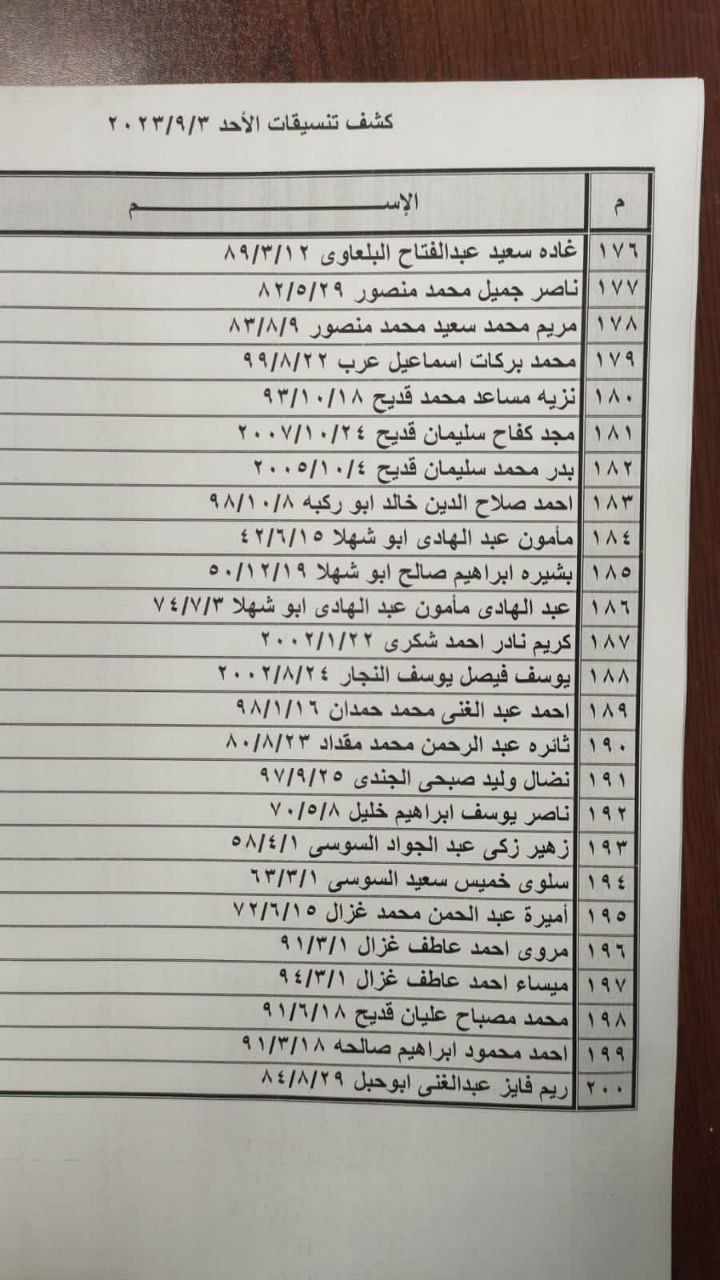 كشف تنسيقات الأحد ٢٠٢٣/٩/٣
م الإســـــــــــــــــــــم
١٧٦ غاده سعيد عبدالفتاح البلعاوى ٨٩/٣/١٢
١٧٧ ناصر جميل محمد منصور ٨٢/٥/٢٩
١٧٨ مريم محمد سعيد محمد منصور ٨٣/٨/٩
١٧٩ محمد بركات اسماعيل عرب ٩٩/٨/٢٢
١٨٠ نزيه مساعد محمد قديح ٩٣/١٠/١٨
١٨١ مجد كفاح سليمان قديح ٢٠٠٧/١٠/٢٤
١٨٢ بدر محمد سليمان قديح ٢٠٠٥/١٠/٤
١٨٣ احمد صلاح الدين خالد ابو ركبه ٩٨/١٠/٨
١٨٤ مأمون عبد الهادى ابو شهلا ٤٢/٦/١٥
١٨٥ بشيره ابراهيم صالح ابو شهلا ٥٠/١٢/١٩
١٨٦ عبد الهادى مأمون عبد الهادى ابو شهلا ٧٤/٧/٣
١٨٧ كريم نادر احمد شكرى ٢٠٠٢/١/٢٢
١٨٨ يوسف فيصل يوسف النجار ٢٠٠٢/٨/٢٤
١٨٩ احمد عبد الغنى محمد حمدان ٩٨/١/١٦
١٩٠ ثائره عبد الرحمن محمد مقداد ٨٠/٨/٢٣
١٩١ نضال وليد صبحى الجندى ٩٧/٩/٢٥
١٩٢ ناصر يوسف ابراهيم خليل ٧٠/٥/٨
١٩٣ زهير زكى عبد الجواد السوسى ٥٨/٤/١
١٩٤ سلوى خميس سعيد السوسى ٦٣/٣/١
١٩٥ أميرة عبد الحمن محمد غزال ٧٢/٦/١٥
١٩٦ مروى احمد عاطف غزال ٩١/٣/١
١٩٧ ميساء احمد عاطف غزال ٩٤/٣/١
١٩٨ محمد مصباح عليان قديح ٩١/٦/١٨
١٩٩ احمد محمود ابراهيم صالحه ٩١/٣/١٨
٢٠٠ ريم فايز عبدالغنى ابوحبل ٨٤/٨/٢٩